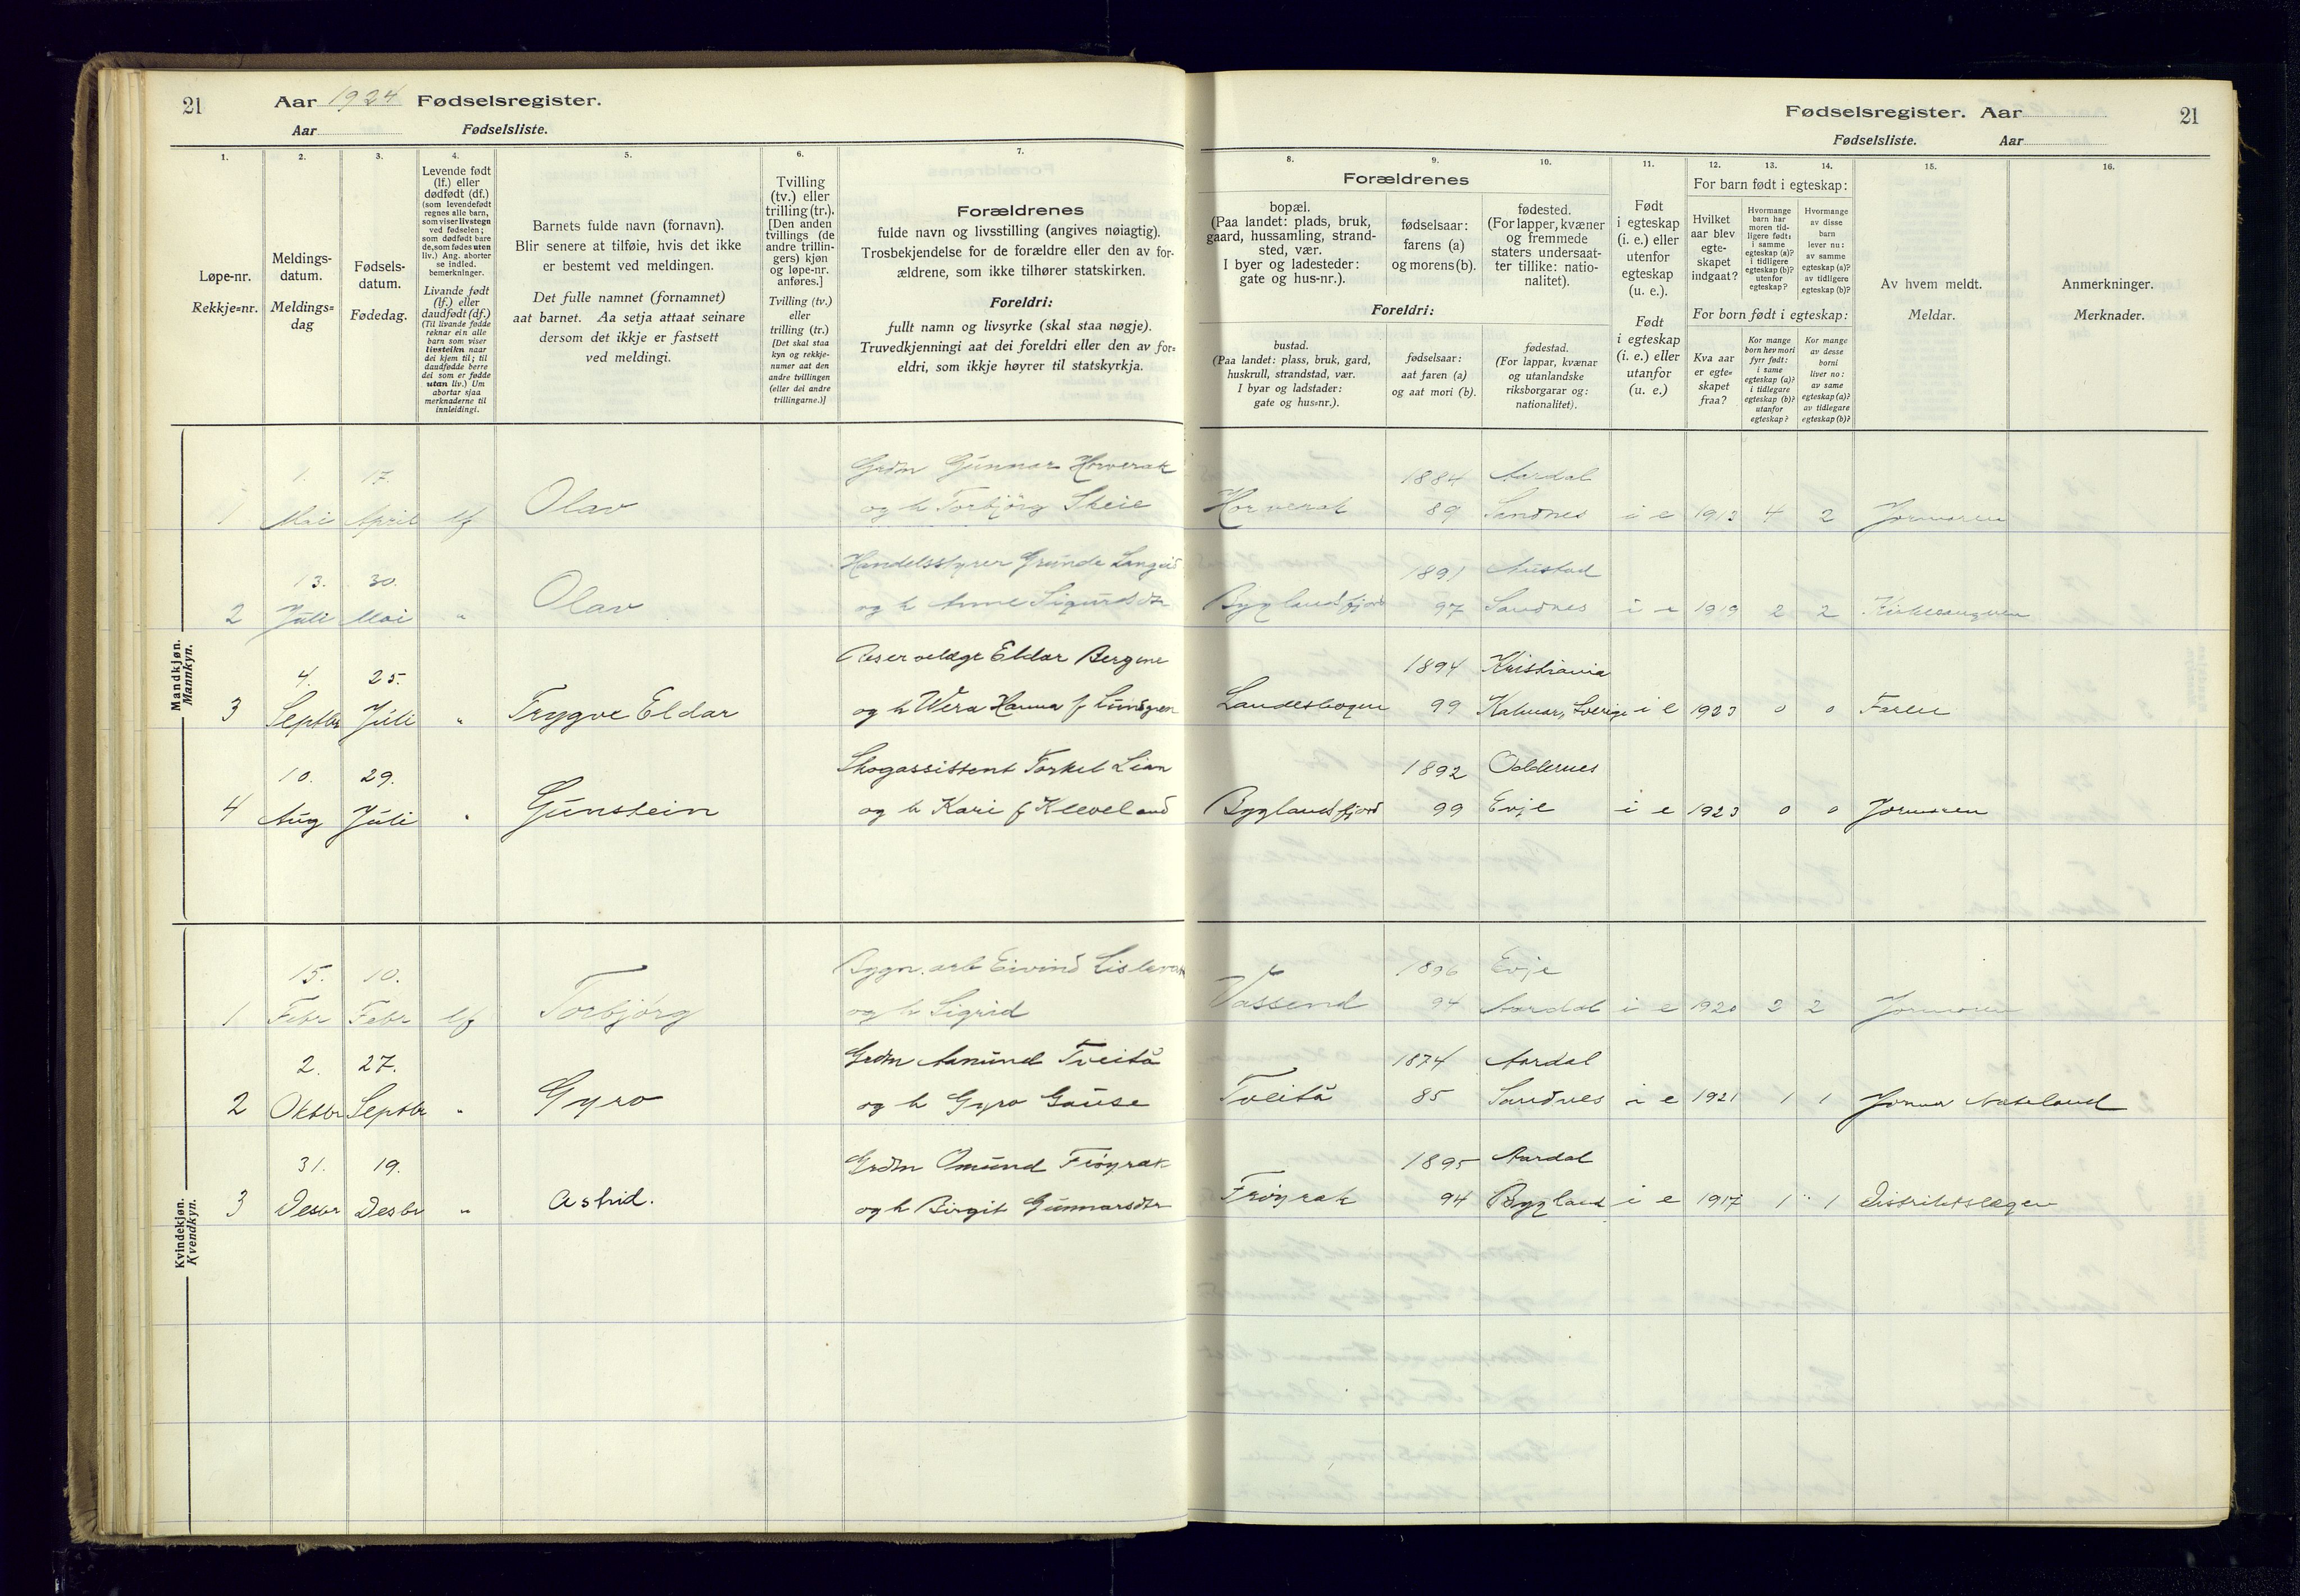 21
Aar 1924 Fødselsregister.
Aar Fødselsliste.
1.
2.
3.
4.
5.
6.
7.
Løpe-nr.
Rekkje=nr.
Meldings-
datum.
Meldings=
dag
Fødsels-
datum.
Fødedag.
Levende født
(lf.) eller
dødfødt (df.)
(som levendefødt
regnes alle barn,
som viser livstegn
ved fødselen;
som dødfødt bare
de, som fødes uten
liv.) Ang. aborter
se indled.
bemerkninger.
Livande født
(lf.) eller
daudfødt (df.)
(Til livande fødde
reknar ein alle
barn som viser
livsteikn naar
dei kjem til; til
daudfødde berre
dei som er fødde
utan liv.) Um
abortar sjaa
merknaderne til
innleidingi.
Barnets fulde navn (fornavn).
Blir senere at tilføie, hvis det ikke
er bestemt ved meldingen.
Det fulle namnet (fornamnet)
aat barnet. Aa setja attaat seinare
dersom det ikkje er fastsett
ved meldingi.
Tvilling
(tv.) eller
trilling (tr.).
[Den anden
tvillings (de
andre trillin-
gers) kjøn
og løpe-nr.
anføres.]
Tvilling (tv.)
eller
trilling (tr.)
[Det skal staa
kyn og rekkje-
numer aat den
andre tvillingen
(eller dei andre
trillingarne.)]
Forældrenes
fulde navn og livsstilling (angives nøiagtig).
Trosbekjendelse for de forældre eller den av for-
ældrene, som ikke tilhører statskirken.
Foreldri:
fullt namn og livsyrke (skal staa nøgje).
Truvedkjenningi aat dei foreldri eller den av for=
eldri, som ikkje høyrer til statskyrkja.
Mandkjøn.
Mannkyn.
1 1. Mai 17. April lf Olav Grdm Gunnar Horverak
og h Torbjörg Skeie
2 13. Juli 30. Mai " Olav Handelsstyrer Grunde Langeid
og h Anne Sigurdsdtr
3 4. Septbr 25. Juli " Trygve Eldar Reservelæge Eldar Bergene
og h Wera Hanna f Lundgren
4 10. Aug 29. Juli " Gunstein Skogassistent Torkel Lian
og h Kari f Kleveland
Kvindekjøn.
Kvendkyn.
1 15. Febr 10. Febr lf Torbjörg Bygn. arb Eivind Lislevak
og h Sigrid
2 2. Oktbr 27. Septbr " Gyro Grdm Aanund Tveitå
og h Gyro Gause
3 31. Desbr 19. Desbr " Astrid. Grdm Omund Fröyrak
og h Birgit Gunnarsdtr
Fødselsregister. Aar
21
Fødselsliste. Aar
8.
9.
10.
11.
12.
13.
14.
15.
16.
Forældrenes
bopæl.
(Paa landet: plads, bruk,
gaard, hussamling, strand-
sted, vær.
I byer og ladesteder:
gate og hus-nr.).
fødselsaar:
farens (a)
og morens (b).
fødested.
(For lapper, kvæner
og fremmede
staters undersaat-
ter tillike: natio-
nalitet).
Foreldri:
bustad.
(Paa landet: plass, bruk, gard,
huskrull, strandstad, vær.
I byar og ladstader:
gate og hus=nr.).
fødselsaar:
aat faren (a)
og aat mori (b).
fødestad.
(For lappar, kvænar
og utanlandske
riksborgarar og:
nationalitet).
Født
i egteskap
(i. e.) eller
utenfor
egteskap
(u. e.).
Født
i egteskap
(i. e.) eller
utanfor
(u. e.)
For barn født i egteskap:
Hvilket
aar blev
egte-
skapet
indgaat?
Hvormange
barn har
moren tid-
ligere født:
i samme
egteskap (a)?
i tidligere
egteskap (b)?
utenfor
egteskap?
Hvormange
av disse
barn
lever nu:
av samme
egteskap (a)?
av tidligere
egteskap (b)?
For born født i egteskap:
Kva aar
er egte=
skapet
fraa?
Kor mange
born hev mori
fyrr født:
i same
egteskap (a)?
i tidlegare
egteskap (b)?
utanfor
egteskap?
Kor mange
av desse
borni
liver no:
av same
egteskap (a)?
av tidlegare
egteskap (b)?
Av hvem meldt.
Meldar.
Anmerkninger.
Merknader.
Horverak 1884 Aardal
89 Sandnes i e 1913 4 2 Jormoren
Byglandsfjord 1891 Austad
97 Sandnes i e 1919 2 2 Kirkesangeren
Landeskogen 1894 Kristiania
99 Kalmar, Sverige i e 1923 0 0 Faren
Byglandsfjord 1892 Oddernes
99 Evje i e 1923 0 0 Jormoren
Vassend 1896 Evje
94 Aardal i e 1920 2 2 Jormoren
Tveitå 1874 Aardal
85 Sandnes i e 1921 1 1 Jormor Nateland
Fröyrak 1895 Aardal
94 Bygland i e 1917 1 1 Distriktslægen